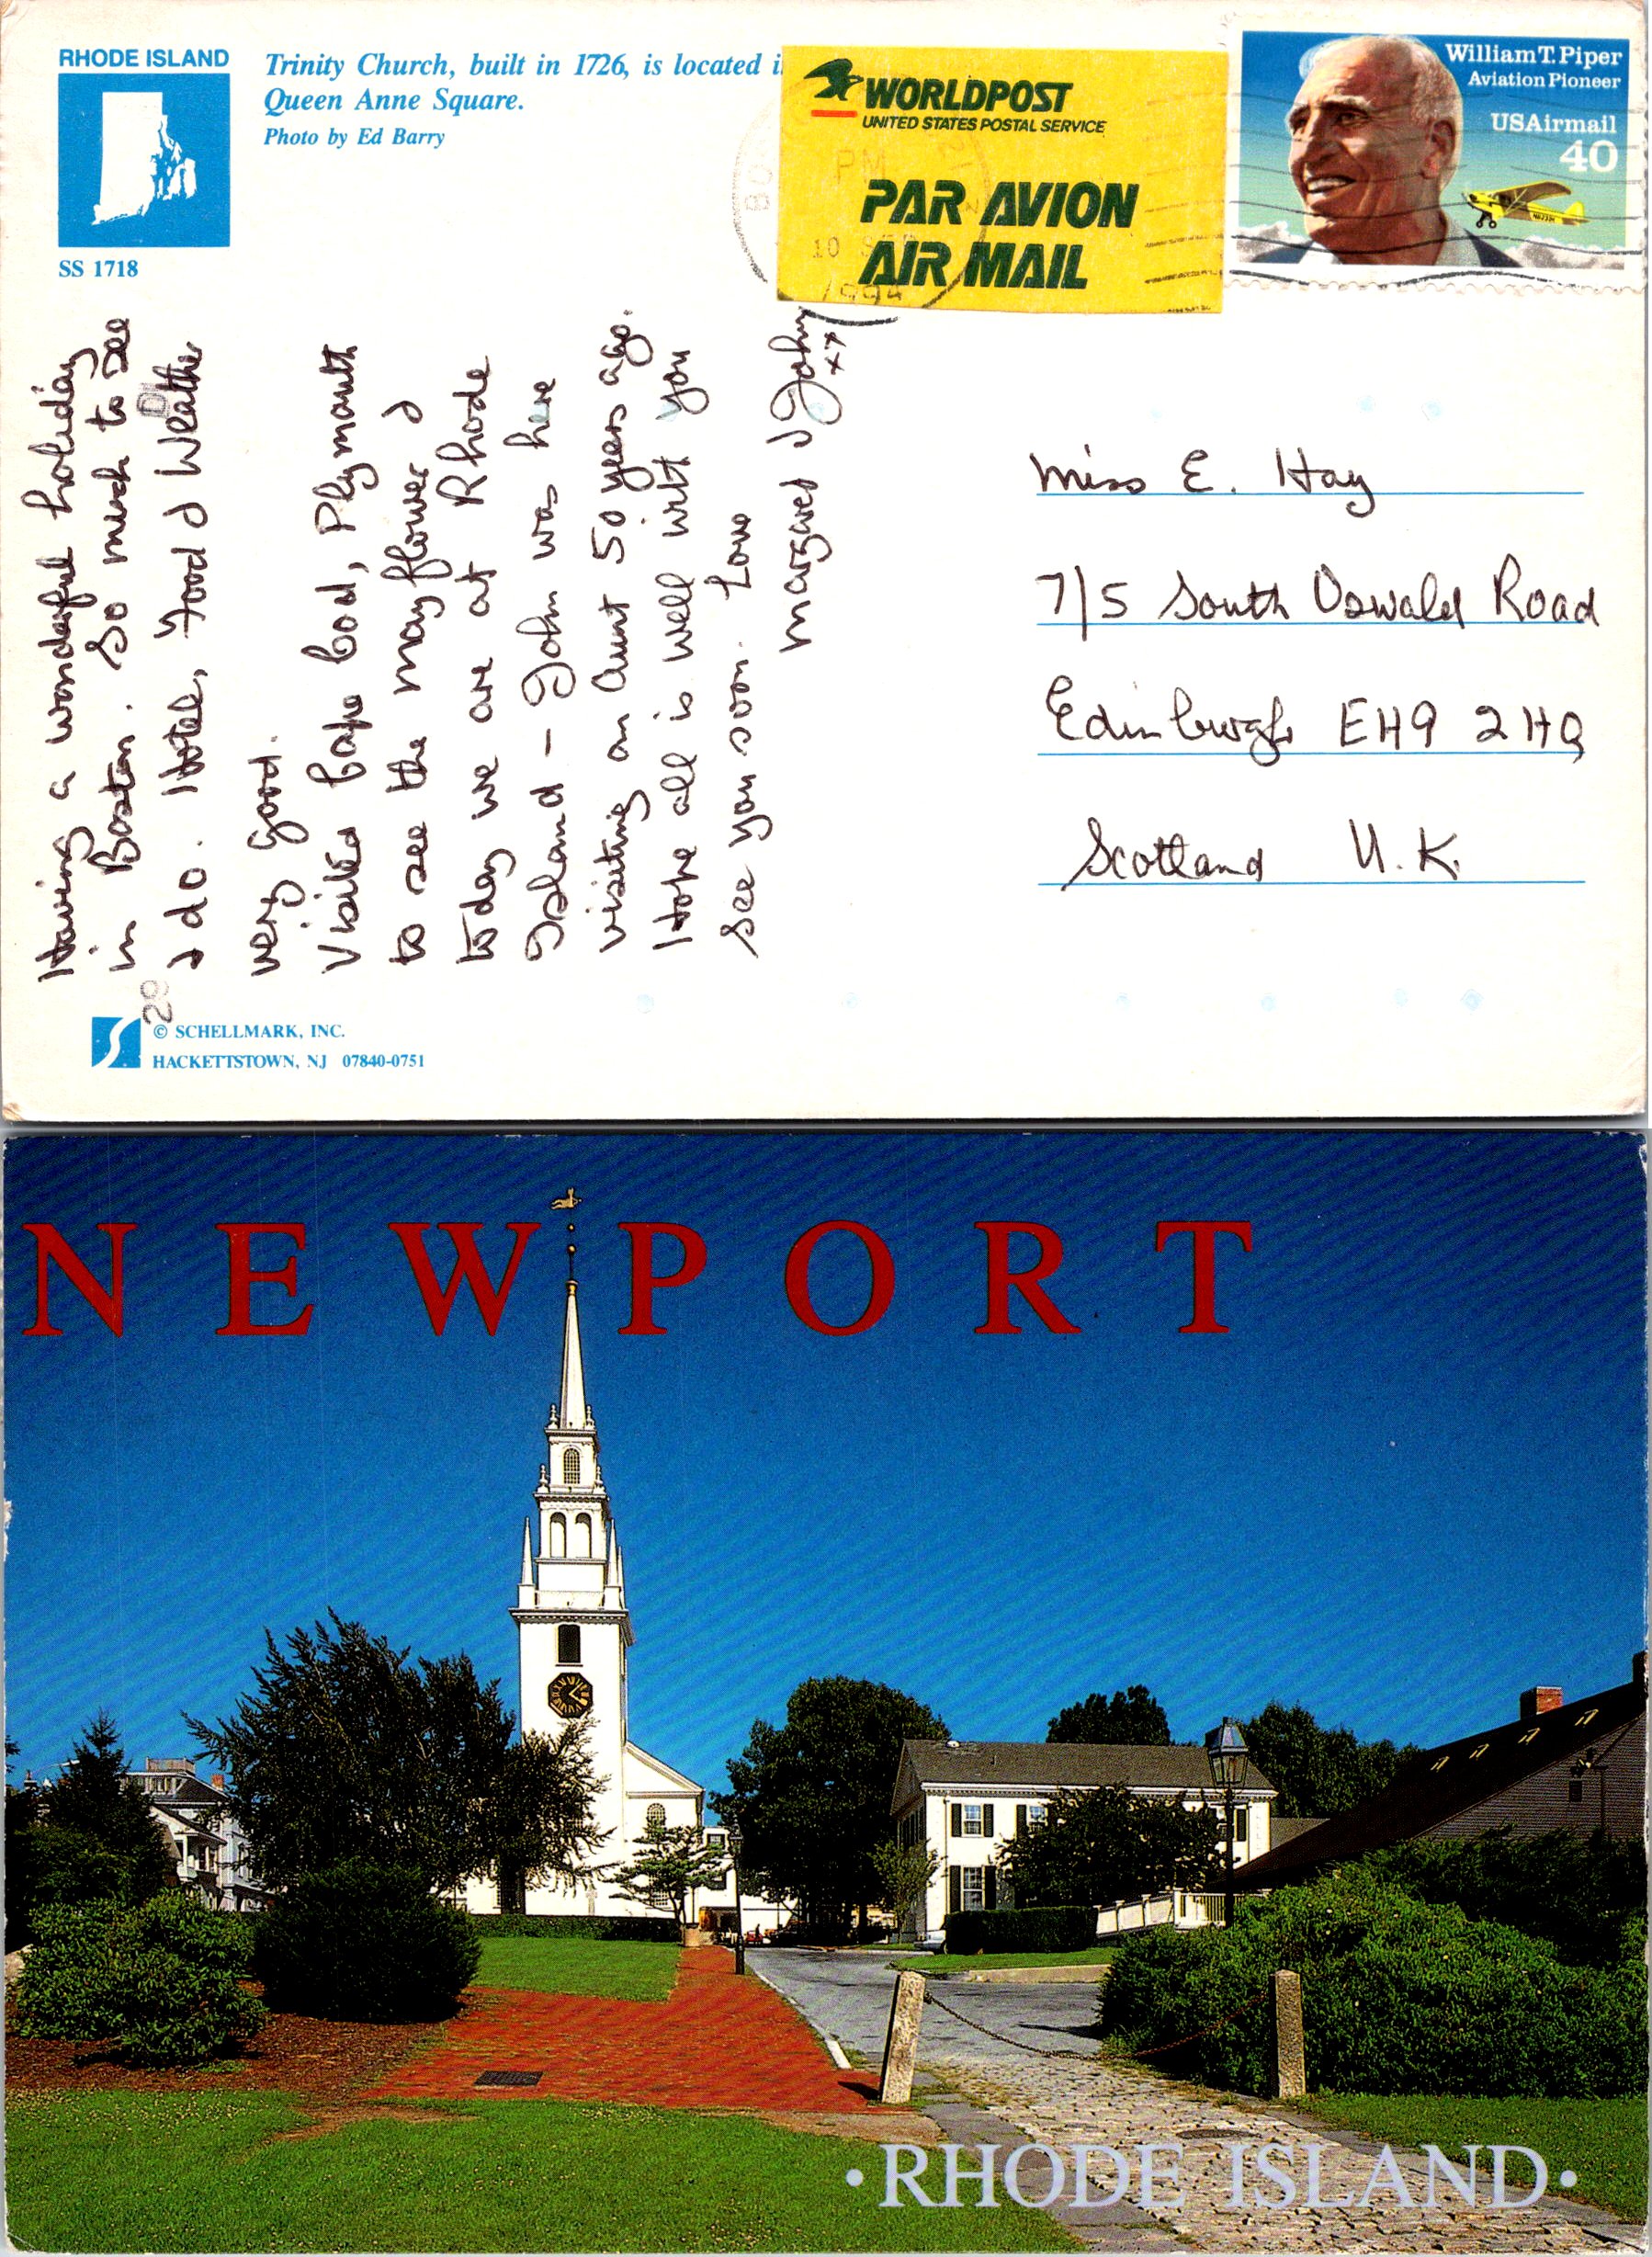 RHODE ISLAND
SS 1718
Trinity Church, built in 1726, is located i
Queen Anne Square.
Photo by Ed Barry
WORLDPOST
UNITED STATES POSTAL SERVICE
PAR AVION
AIR MAIL
PM
10 SEP
1994
William T. Piper
Aviation Pioneer
USAirmail
40
Having a wonderful holiday
in Boston. So much to see
& do. Hotel, Food & Weather
very good.
Visited Cape Cod, Plymouth
to see the Mayflower &
today we are at Rhode
Island - John was here
visiting an Aunt 50 years ago.
Hope all is well with you
See you soon. Love
Margaret & John
xx
Miss E. Hay
7/5 South Oswald Road
Edinburgh EH9 2HQ
Scotland U.K.
© SCHELLMARK, INC.
HACKETTSTOWN, NJ 07840-0751
NEWPORT
•RHODE ISLAND•